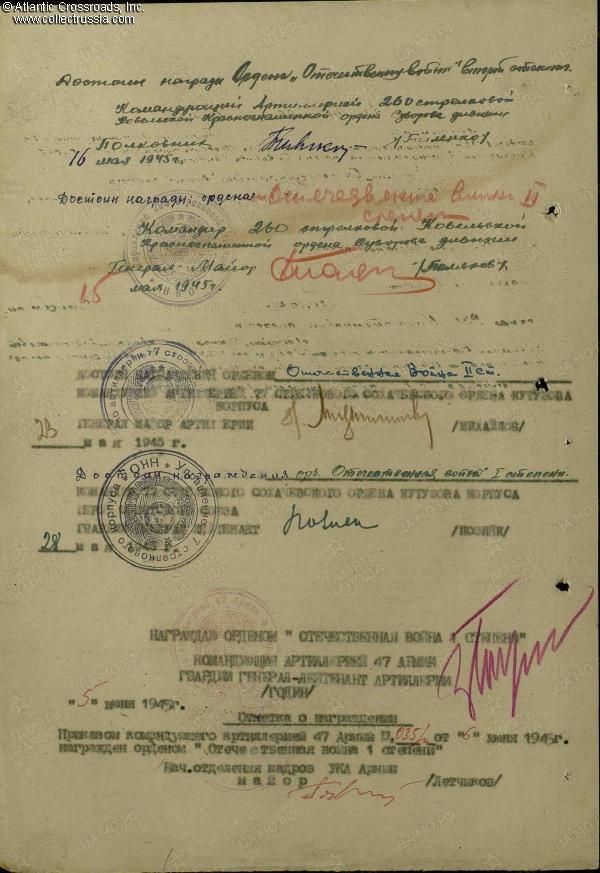 © Atlantic Crossroads, Inc.
www.collectrussia.com
Достоин награды Орден „Отечественну войн" второй степени.
Командующий Артиллерией 260 стрелковой
Ковельской Краснознаменной ордена Суворова дивизии
Полковник
16 мая 1945г.
Достоин награды; ордена Отечественные войны II
степени
Командир 260 стрелковой Ковельской
Краснознаменной ордена Суворова дивизии
Генерал-Майор /Поляков/
15 мая 1945г.
ДОСТОИН НАГРАДЫ ОРДЕНОМ Отечественная Война II ст.
КОМАНДУЮЩИЙ АРТИЛЛЕРИЕЙ 77 СТРЕЛКОВОГО СОХАЧЕВСКОГО ОРДЕНА КУТУЗОВА
КОРПУСА
ГЕНЕРАЛ МАЙОР АРТИЛЛЕРИИ /МИХАЙЛОВ/
23 мая 1945 г.
Достоин награждения орд. Отечественная война I степени.
77 СТРЕЛКОВОГО СОХАЧЕВСКОГО ОРДЕНА КУТУЗОВА КОРПУСА
ГВАРДИИ ГЕНЕРАЛ ЛЕЙТЕНАНТ /ПОЗНЯК/
28 мая
НАГРАЖДАЮ ОРДЕНОМ " ОТЕЧЕСТВЕННАЯ ВОЙНА 1 СТЕПЕНИ"
КОМАНДУЮЩИЙ АРТИЛЛЕРИЕЙ 47 АРМИИ
ГВАРДИИ ГЕНЕРАЛ-ЛЕЙТЕНАНТ АРТИЛЛЕРИИ
/ГОДИН/
"5" июня 1945г.
Отметка о награждении
Приказом командующего артиллерией 47 Армии N. 035/н от "6" июня 1945г.
награжден орденом "Отечественная война 1 степени"
Нач. отделения кадров УКА Армии
майор /Летчиков/